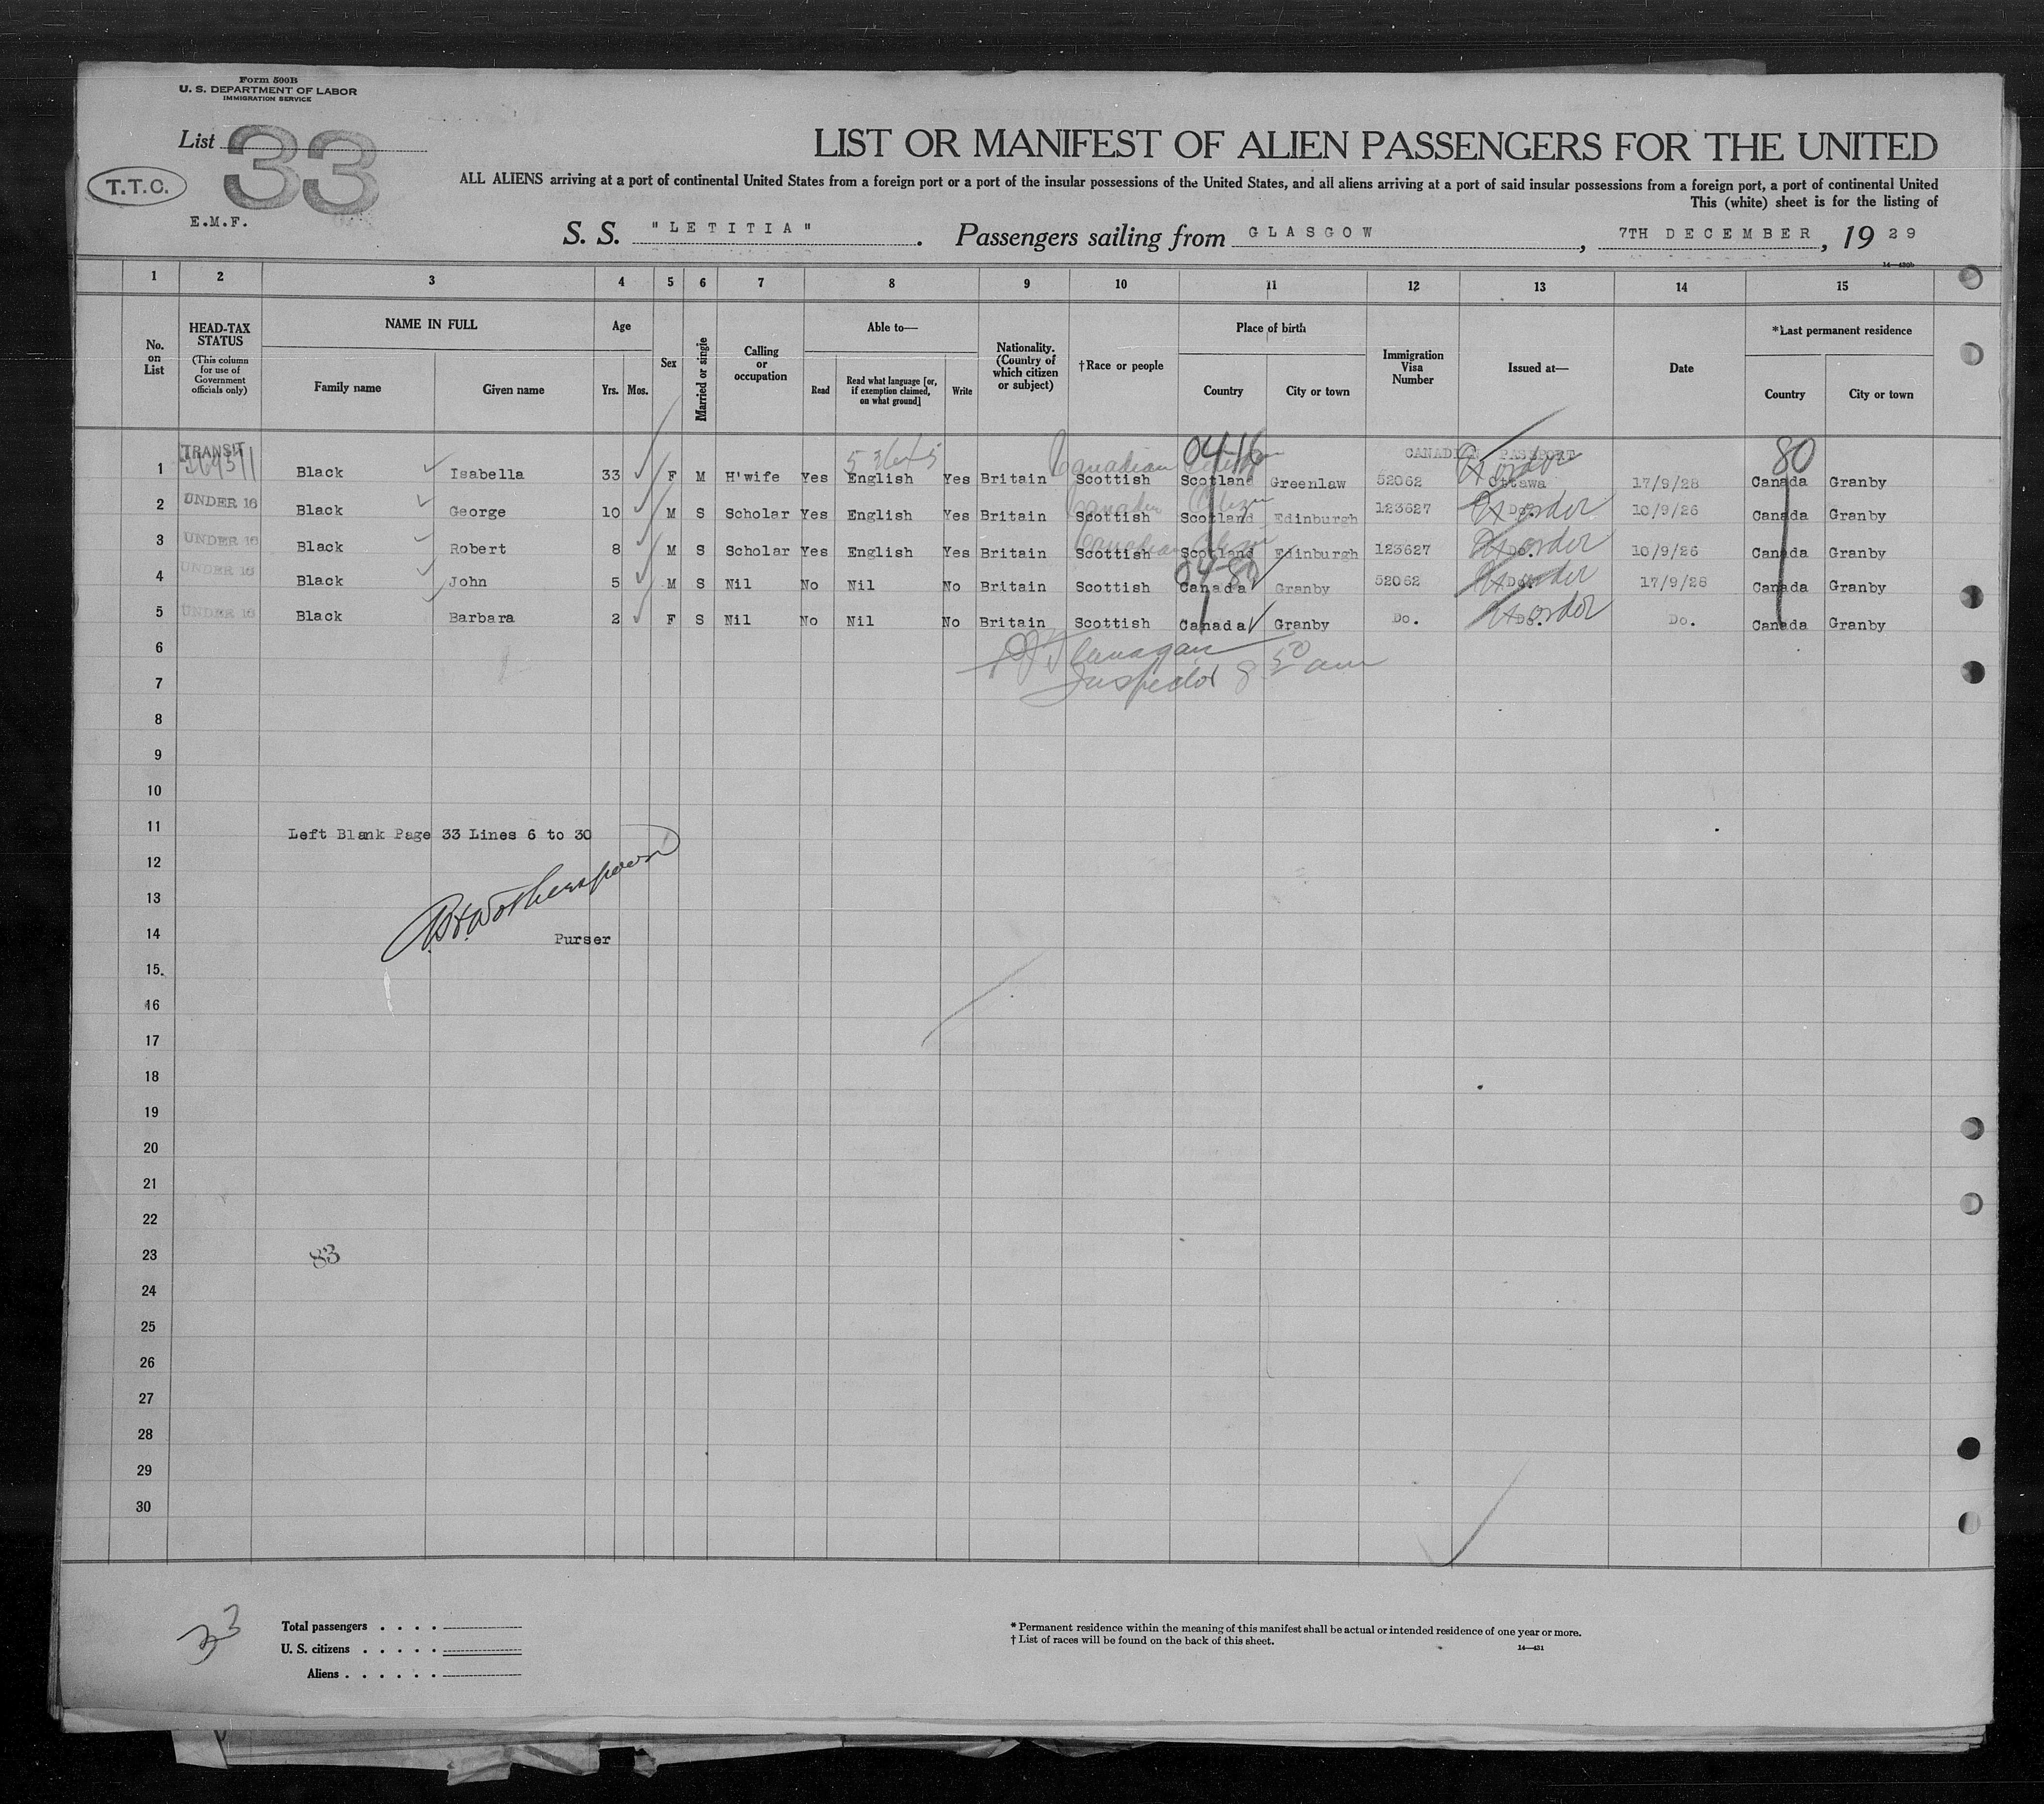 Form 500B
U. S. DEPARTMENT OF LABOR
IMMIGRATION SERVICE
List 33
T.T.C.
E.M.F.
LIST OR MANIFEST OF ALIEN PASSENGERS FOR THE UNITED
ALL ALIENS arriving at a port of continental United States from a foreign port or a port of the insular possessions of the United States, and all aliens arriving at a port of said insular possessions from a foreign port, a port of continental United
This (white) sheet is for the listing of
S. S. "LETITIA". Passengers sailing from GLASGOW, 7TH DECEMBER, 1929
14—430b
1 2 3 4 5 6 7 8 9 10 11 12 13 14 15
No. on List
HEAD-TAX STATUS (This column for use of Government officials only)
NAME IN FULL
Family name Given name
Age
Yrs. Mos.
Sex
Married or single
Calling or occupation
Able to—
Read Read what language [or, if exemption claimed, on what ground] Write
Nationality. (Country of which citizen or subject)
†Race or people
Place of birth
Country City or town
Immigration Visa Number
Issued at—
Date
*Last permanent residence
Country City or town
TRANSIT Canadian Citizen 04 16 CANADIAN PASSPORT 80
1 Black Isabella 33 F M H'wife Yes English Yes Britain Scottish Scotland Greenlaw 52062 Ottawa Ex order 17/9/28 Canada Granby
Canadian Citizen
2 UNDER 16 Black George 10 M S Scholar Yes English Yes Britain Scottish Scotland Edinburgh 123627 Do. Ex order 10/9/26 Canada Granby
Canadian Citizen
3 UNDER 16 Black Robert 8 M S Scholar Yes English Yes Britain Scottish Scotland Edinburgh 123627 Do. Ex order 10/9/26 Canada Granby
04-80
4 UNDER 16 Black John 5 M S Nil No Nil No Britain Scottish Canada Granby 52062 Do. Ex order 17/9/28 Canada Granby
5 UNDER 16 Black Barbara 2 F S Nil No Nil No Britain Scottish Canada Granby Do. Do. Ex order Do. Canada Granby
6 Flanagan
7 Inspector 8 50 am
8
9
10
11 Left Blank Page 33 Lines 6 to 30
12
13 Wotherspoon
14 Purser
15
16
17
18
19
20
21
22
23 83
24
25
26
27
28
29
30
33
Total passengers
U. S. citizens
Aliens
* Permanent residence within the meaning of this manifest shall be actual or intended residence of one year or more.
† List of races will be found on the back of this sheet.
14—431